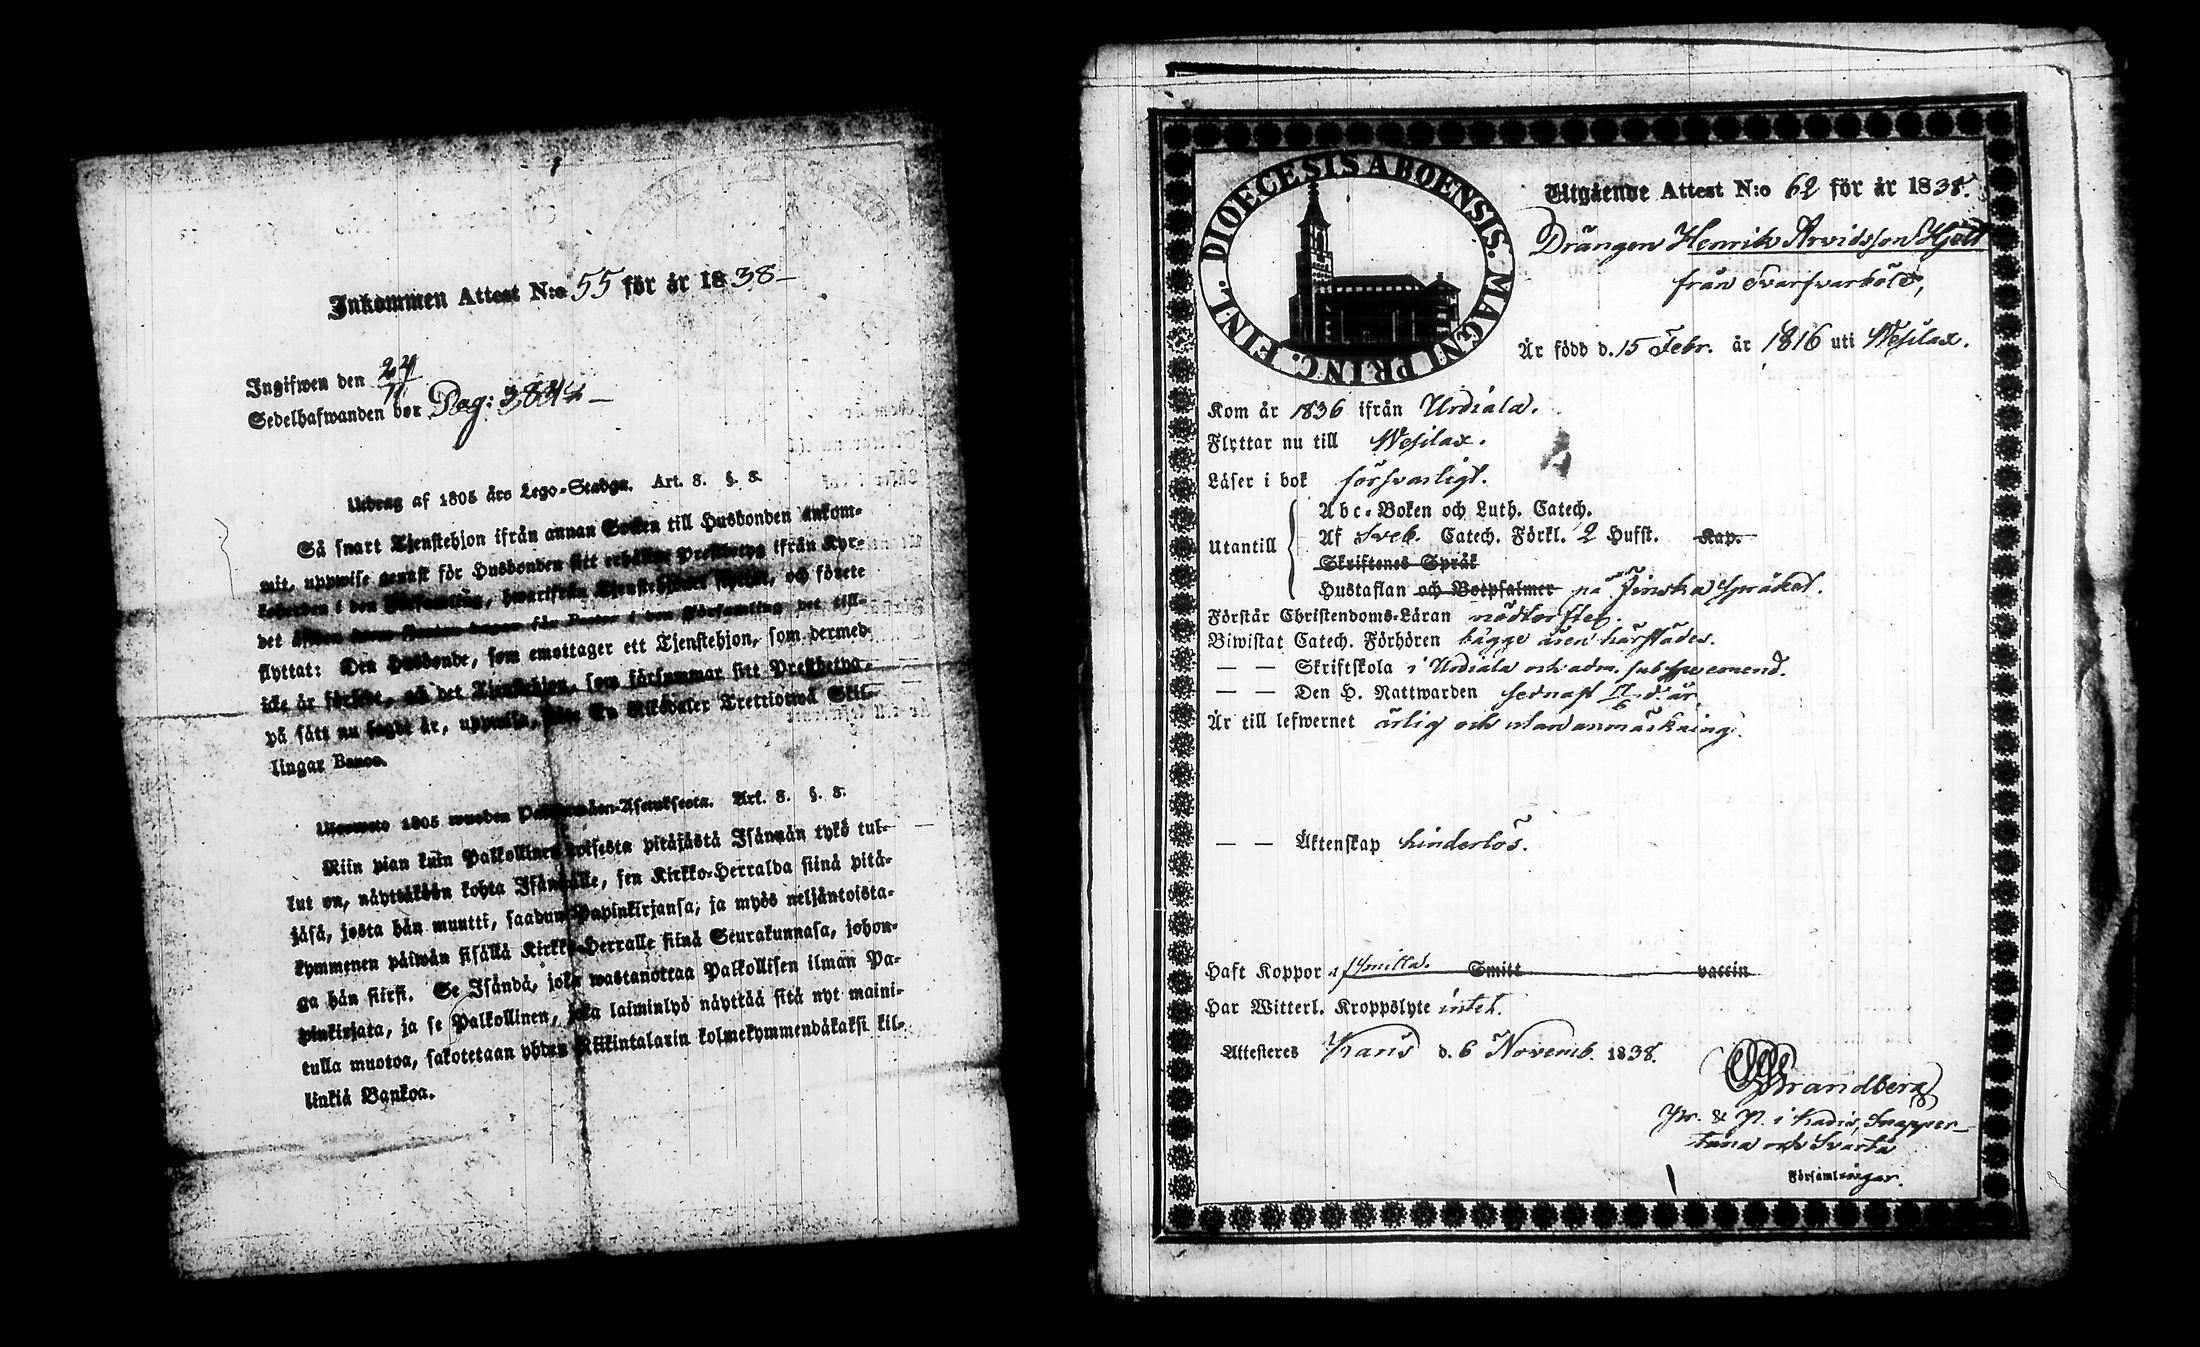 Inkommen Attest N:o 55 för år 1838
Ingifwen den 24/11
Sedelhafwanden bor Pag: 384
Utdrag af 1805 års Lego-Stadga. Art. 8. §. 8.
Så snart Tjenstehjon ifrån annan Socken till Husbonden ankom-
mit, uppwise genast för Husbonden sitt erhållne Prestbetyg ifrån Kyr-
koherden i den Församling, hwarifrån Tjenstehjonet flyttat, och förete
det för Pastor i den Församling, det till-
flyttat: Den Husbonde, som emottager ett Tjenstehjon, som dermed
icke är försedt, och det Tjenstehjon, som försummar sitt Prestbetyg,
på sätt nu sagdt är, uppwisa, En Riksdaler Trettiotwå Skil-
lingar Banco.
Ulosweto 1805 wuoden Palkollisten-Asetuksesta. Art. 8. §. 8.
Niin pian kuin Palkollinen toisesta pitäjästä Isännän tykö tul-
lut on, näyttäköön kohta Isännälle, sen Kirkko-Herralda siinä pitä-
jäsä, josta hän muutti, saadun Papinkirjansa, ja myös neljäntoista-
kymmenen päiwän sisällä Kirkko-Herralle siinä Seurakunnasa, johon-
ga hän siirsi. Se Isändä, joka wastanottaa Palkollisen ilman Pa-
pinkirjata, ja se Palkollinen, joka laiminlyö näyttää sitä nyt maini-
tulla muotoa, sakotetaan yhden Riikintalarin kolmekymmendäkaksi kil-
linkiä Bankoa.
DIOECESIS ABOENSIS. MAGNI PRINC. FINL.
Utgående Attest N:o 62 för år 1838.
Drängen Henrik Arvidsson Hjelt
från Svarfvarböle,
Är född d. 15 Febr. år 1816 uti Wesilax.
Kom år 1836 ifrån Urdiala.
Flyttar nu till Wesilax.
Läser i bok försvarligt.
Utantill
Abc-Boken och Luth. Catech.
Af Sveb. Catech. Förkl. 2 Hufst. Kap.
Skriftenes Språk
Hustaflan och Botpsalmer på Finska Språket.
Förstår Christendoms-Läran nödtorftel.
Biwistat Catech. Förhören bägge åren härstädes.
— — Skriftskola i Urdiala och adm. sub spe emend.
— — Den H. Nattwarden sednast 17/6 d. år.
Är till lefwernet ärlig och utan anmärkning.
— — Äktenskap hinderlös.
Haft Koppor Smitt vaccin
Har Witterl. Kroppslyte intet.
Attesteres Karis d. 6 Novemb. 1838.
Strandberg
Pr. & P. i Karis, Snapper-
tuna och Svartå
Församlingar.